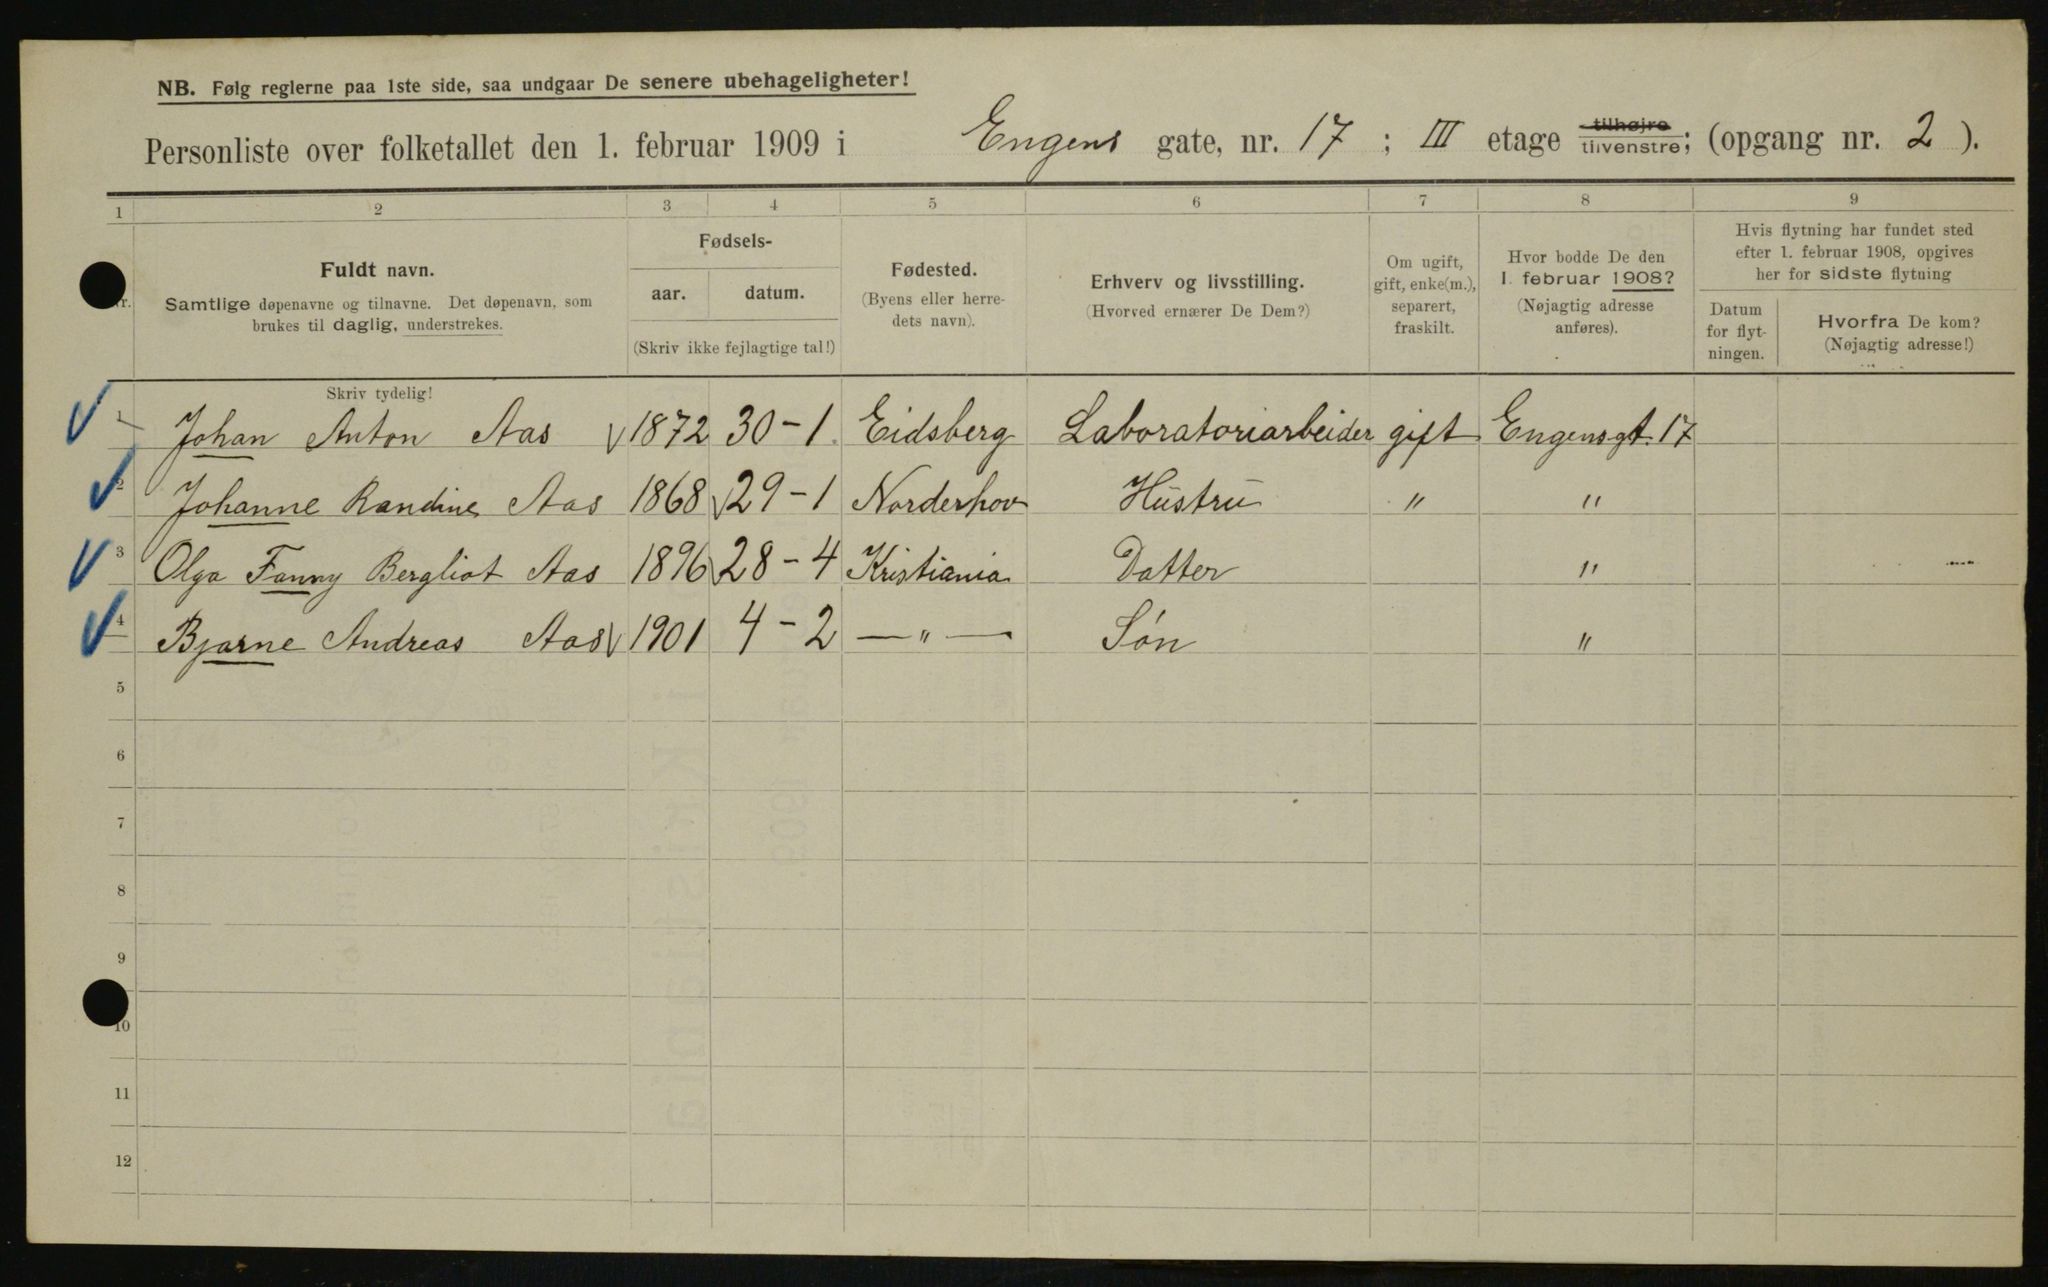 NB. Følg reglerne paa 1ste side, saa undgaar De senere ubehageligheter!
Personliste over folketallet den 1. februar 1909 i Engens gate, nr. 17 ; III etage tilhøjre tilvenstre; (opgang nr. 2 ).
1 2 3 4 5 6 7 8 9
Nr.
Fuldt navn.
Samtlige døpenavne og tilnavne. Det døpenavn, som
brukes til daglig, understrekes.
Fødsels-
aar. datum.
(Skriv ikke fejlagtige tal!)
Fødested.
(Byens eller herre-
dets navn).
Erhverv og livsstilling.
(Hvorved ernærer De Dem?)
Om ugift,
gift, enke(m.),
separert,
fraskilt.
Hvor bodde De den
1. februar 1908?
(Nøjagtig adresse
anføres).
Hvis flytning har fundet sted
efter 1. februar 1908, opgives
her for sidste flytning
Datum
for flyt-
ningen.
Hvorfra De kom?
(Nøjagtig adresse!)
Skriv tydelig!
1 Johan Anton Aas 1872 30-1 Eidsberg Laboratoriarbeider gift Engensgt. 17
2 Johanne Randine Aas 1868 29-1 Norderhov Hustru " "
3 Olga Fanny Bergliot Aas 1896 28-4 Kristiania Datter "
4 Bjarne Andreas Aas 1901 4-2 —"— Søn "
5
6
7
8
9
10
11
12